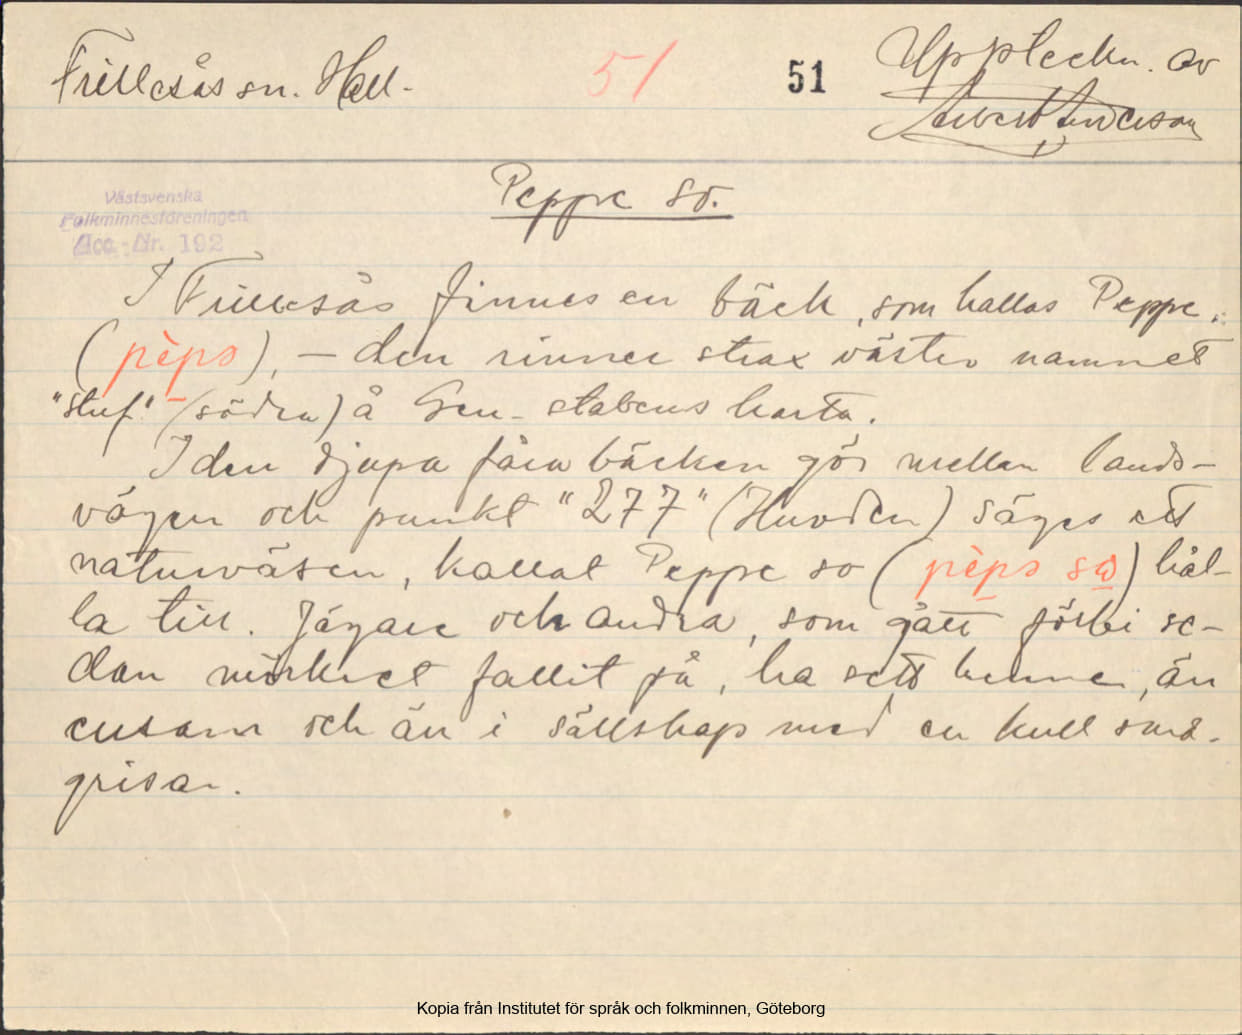 Frillesås sn. Hall. 51 51 Uppteckn. av
Albert Anderson
Västsvenska
Folkminnesföreningen
Acc.-Nr. 192
Peppe so.
I Frillesås finnes en bäck, som kallas Peppe,
(pèpə), – den rinner strax väster namnet
"Stuf." (södra) å Gen-stabens karta.
I den djupa fåra bäcken gör mellan lands-
vägen och punkt "277" (Huvden) säges ett
naturväsen, kallat Peppe so (pèpə so) hål-
la till. Jägare och andra, som gått förbi se-
dan mörkret fallit på, ha sett henne, än
ensam och än i sällskap med en kull små-
grisar.
Kopia från Institutet för språk och folkminnen, Göteborg